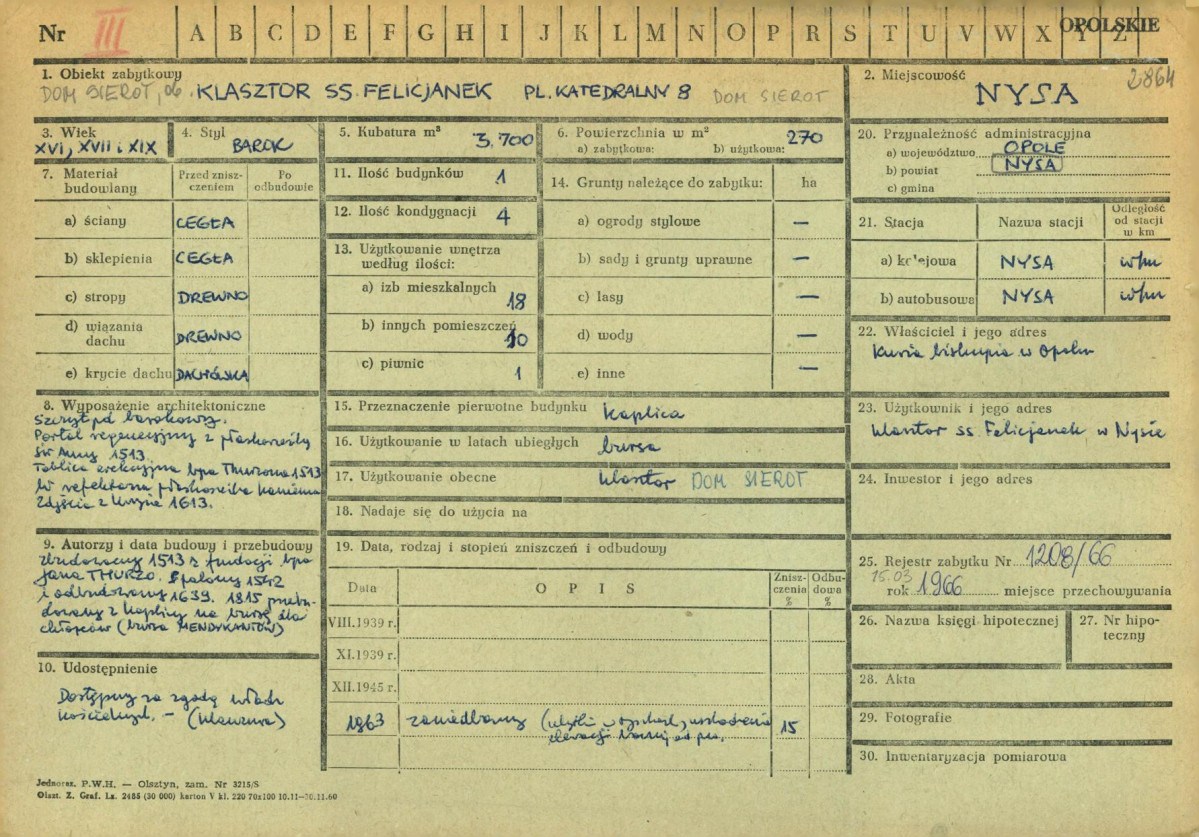 Nr III A B C D E F G H I J K L M N O P R S T U V W X Y Z OPOLSKIE
1. Obiekt zabytkowy
DOM SIEROT, KLASZTOR SS. FELICJANEK PL. KATEDRALNY 8 DOM SIEROT
2. Miejscowość 2864
NYSA
3. Wiek
XVI, XVII i XIX
4. Styl
BAROK
5. Kubatura m³
3.700
6. Powierzchnia w m²
a) zabytkowa: b) użytkowa: 270
7. Materiał budowlany
Przed zniszczeniem
Po odbudowie
a) ściany CEGŁA
b) sklepienia CEGŁA
c) stropy DREWNO
d) wiązania dachu DREWNO
e) krycie dachu DACHÓWKA
8. Wyposażenie architektoniczne
Szczyt pd barokowy.
Portal z płaskorzeźbą
św Anny 1513.
Tablica erekcyjna bpa Thurzona 1513
W refektarzu płaskorzeźba kamienna
Zdjęcie z Krzyża 1613.
9. Autorzy i data budowy i przebudowy
Zbudowany 1513 z fundacji bpa
Jana THURZO. Spalony 1542
i odbudowany 1639. 1815 przebu-
dowany z kaplicy na bursę dla
chłopców (bursa MENDYKANTÓW)
10. Udostępnienie
Dostępny za zgodą władz
kościelnych. – (klauzura)
11. Ilość budynków 1
12. Ilość kondygnacji 4
13. Użytkowanie wnętrza
według ilości:
a) izb mieszkalnych
18
b) innych pomieszczeń
10
c) piwnic
1
14. Grunty należące do zabytku: ha
a) ogrody stylowe —
b) sady i grunty uprawne —
c) lasy —
d) wody —
e) inne —
15. Przeznaczenie pierwotne budynku kaplica
16. Użytkowanie w latach ubiegłych bursa
17. Użytkowanie obecne klasztor DOM SIEROT
18. Nadaje się do użycia na
19. Data, rodzaj i stopień zniszczeń i odbudowy
Data OPIS Zniszczenia % Odbudowa %
VIII.1939 r.
XI.1939 r.
XII.1945 r.
1963 zaniedbany 15
20. Przynależność administracyjna
a) województwo OPOLE
b) powiat NYSA
c) gmina
21. Stacja Nazwa stacji Odległość od stacji w km
a) kolejowa NYSA
b) autobusowa NYSA
22. Właściciel i jego adres
Kuria biskupia w Opolu
23. Użytkownik i jego adres
klasztor ss. Felicjanek w Nysie
24. Inwestor i jego adres
25. Rejestr zabytku Nr 1208/66
15.03
rok 1966 miejsce przechowywania
26. Nazwa księgi hipotecznej
27. Nr hipoteczny
28. Akta
29. Fotografie
30. Inwentaryzacja pomiarowa
Jednoraz. P.W.H. — Olsztyn, zam. Nr 3215/S
Olszt. Z. Graf. Lz. 2485 (30 000) karton V kl. 220 70x100 10.11—30.11.60